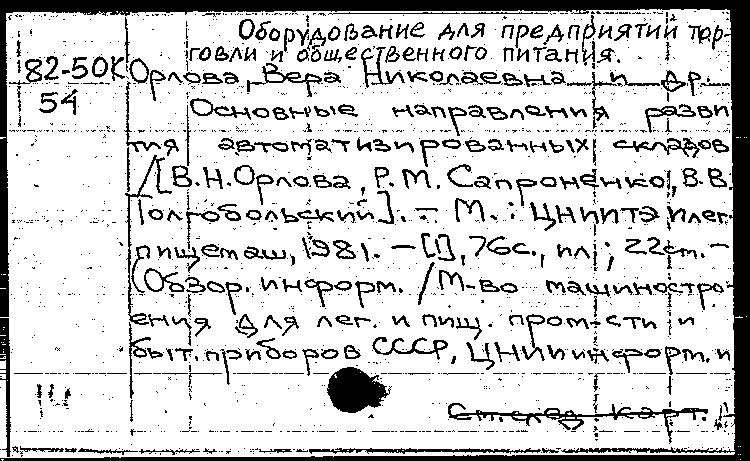 Оборудование для предприятий тор-
говли и общественного питания.
82-50К Орлова, Вера Николаевна и др.
54 Основные направления разви
тия автоматизированных складов
/[В.Н.Орлова, Р.М.Сапроненко, В.В.
Толгобольский]. - М.: ЦНИИТЭИлег-
пищемаш, 1981. - [1], 76с., ил.; 22см. -
(Обзор. информ. / М-во машиностро-
ения для лег. и пищ. пром-сти и
быт. приборов СССР, ЦНИИ информ. и
14
См.след карт.